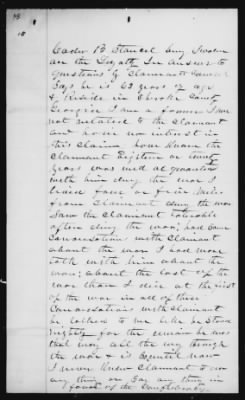 Cader B Stancel being Sworn
are the Deputy In answer to
questions by Claimants Council
Says he is 63 years of age
& Reside in Cherokee County
Georgia I am a farmer I am
not related to the claimant
and have no interest in
this claim have known the
claimant Eighteen or twenty
years was well acquainted
with him during the war I
lived four or five miles
from Claimant during the war
Saw the claimant tolerable
often during the war; had Some
Conversations with Claimant
about the war I had more
talk with him about the
war; about the last of the
war than I did at the first
of the war in all of these
Conversations with claimant
he talked to me like he stood
right for the union he was
that way all the way through
the war & is Equally now
I never Knew claimant to do
any thing or Say any thing in
favor of the Confederacy